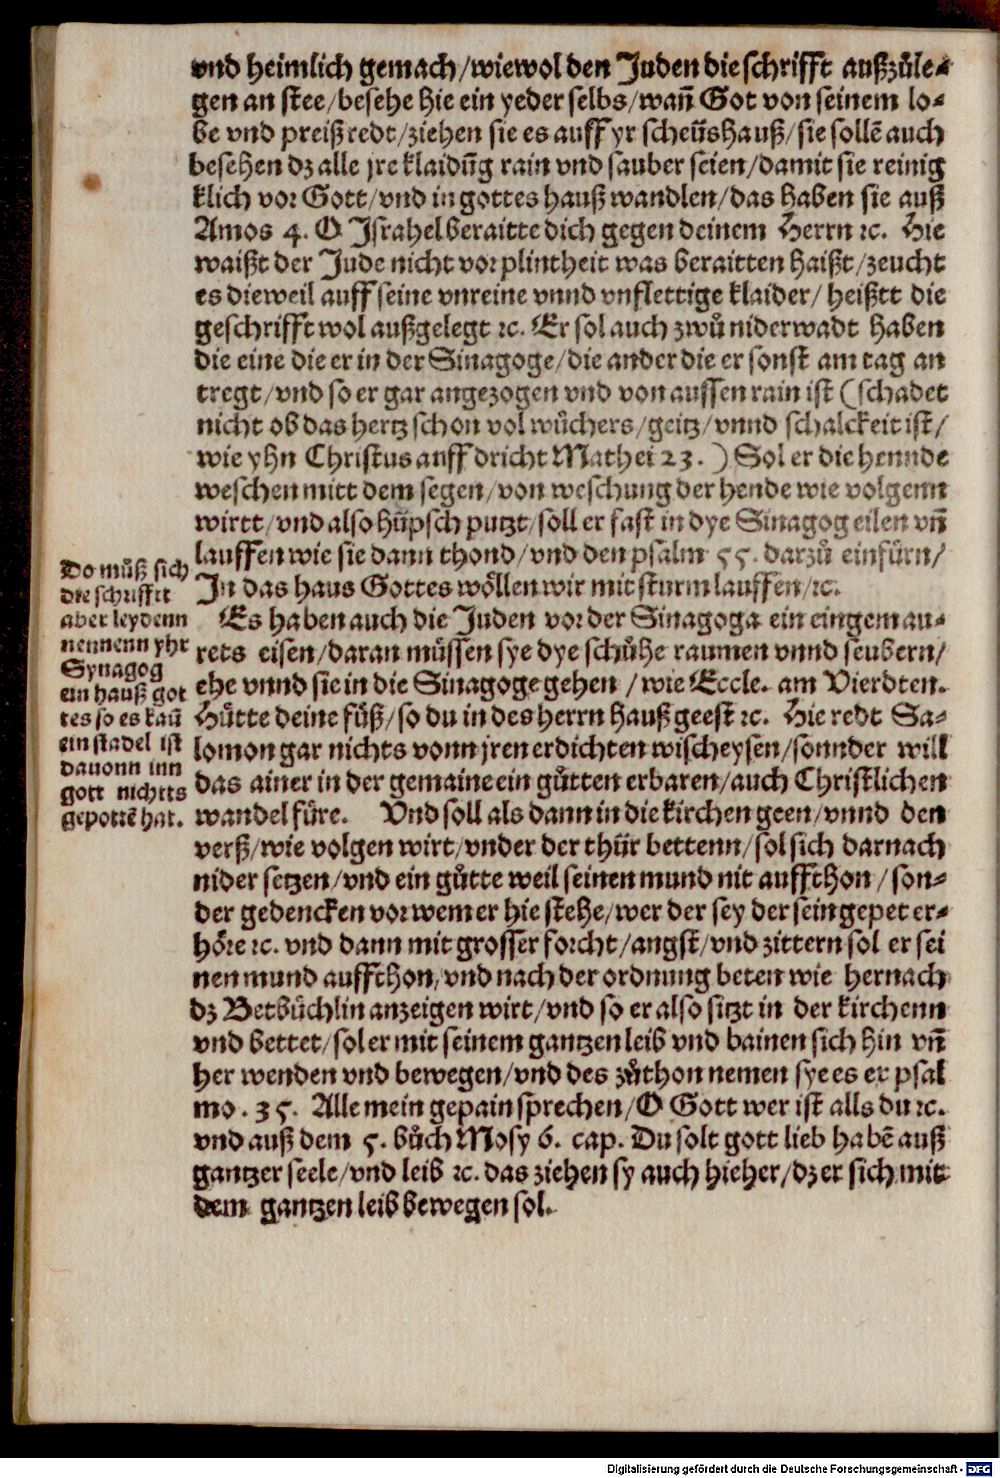 vnd heimlich gemach/wiewol den Juden die schrifft außzůle⸗
gen an stee/besehe hie ein yeder selbs/wañ Got von seinem lo⸗
be vnd preiß redt/ziehen sie es auff yr scheüshauß/sie sollẽ auch
besehen dz alle jre klaidũg rain vnd sauber seien/damit sie reinig
klich vor Gott/vnd in gottes hauß wandlen/das haben sie auß
Amos 4. O Israhel beraitte dich gegen deinem Herrn ꝛc. Hie
waißt der Jude nicht vor plintheit was beraitten haißt/zeucht
es dieweil auff seine vnreine vnnd vnflettige klaider/ heißtt die
geschrifft wol außgelegt ꝛc. Er sol auch zwů niderwadt haben
die eine die er in der Sinagoge/die ander die er sonst am tag an
tregt/vnd so er gar angezogen vnd von aussen rain ist (schadet
nicht ob das hertz schon vol wůchers/geitz/vnnd schalckeit ist/
wie yhn Christus auff dricht Mathei 23. ) Sol er die hennde
weschen mitt dem segen/von weschung der hende wie volgenn
wirtt/vnd also hüpsch putzt/soll er fast in dye Sinagog eilen vñ
lauffen wie sie dann thond/vnd den psalm 55. darzů einfürn/
In das haus Gottes wöllen wir mit sturm lauffen/ꝛc.
Es haben auch die Juden vor der Sinagoga ein eingemau⸗
rets eisen/daran müssen sye dye schůhe raumen vnnd seubern/
ehe vnnd sie in die Sinagoge gehen /wie Eccle. am Vierdten.
Hütte deine füß/so du in des herrn hauß geest ꝛc. Hie redt Sa⸗
lomon gar nichts vonn jren erdichten wischeysen/sonnder will
das ainer in der gemaine ein gůtten erbaren/auch Christlichen
wandel füre. Vnd soll als dann in die kirchen geen/vnnd den
verß/wie volgen wirt/vnder der thür bettenn/sol sich darnach
nider setzen/vnd ein gůtte weil seinen mund nit auffthon/son⸗
der gedencken vor wem er hie stehe/wer der sey der sein gepet er⸗
höre ꝛc. vnd dann mit grosser forcht/angst/vnd zittern sol er sei
nen mund auffthon/vnd nach der ordnung beten wie hernach
dz Betbüchlin anzeigen wirt/vnd so er also sitzt in der kirchenn
vnd bettet/sol er mit seinem gantzen leib vnd bainen sich hin vñ
her wenden vnd bewegen/vnd des zůthon nemen sye es ex psal
mo. 35. Alle mein gepain sprechen/O Gott wer ist alls du ꝛc.
vnd auß dem 5. bůch Mosy 6. cap. Du solt gott lieb habẽ auß
gantzer seele/vnd leib ꝛc. das ziehen sy auch hieher/dz er sich mit
dem gantzen leib bewegen sol.
Do můß sich
die schrifft
aber leydenn
nennenn yhr
Synagog
ein hauß got
tes so es kaũ
ein stadel ist
dauonn inn
gott nichtts
gepottẽ hat.
Digitalisierung gefördert durch die Deutsche Forschungsgemeinschaft - DFG